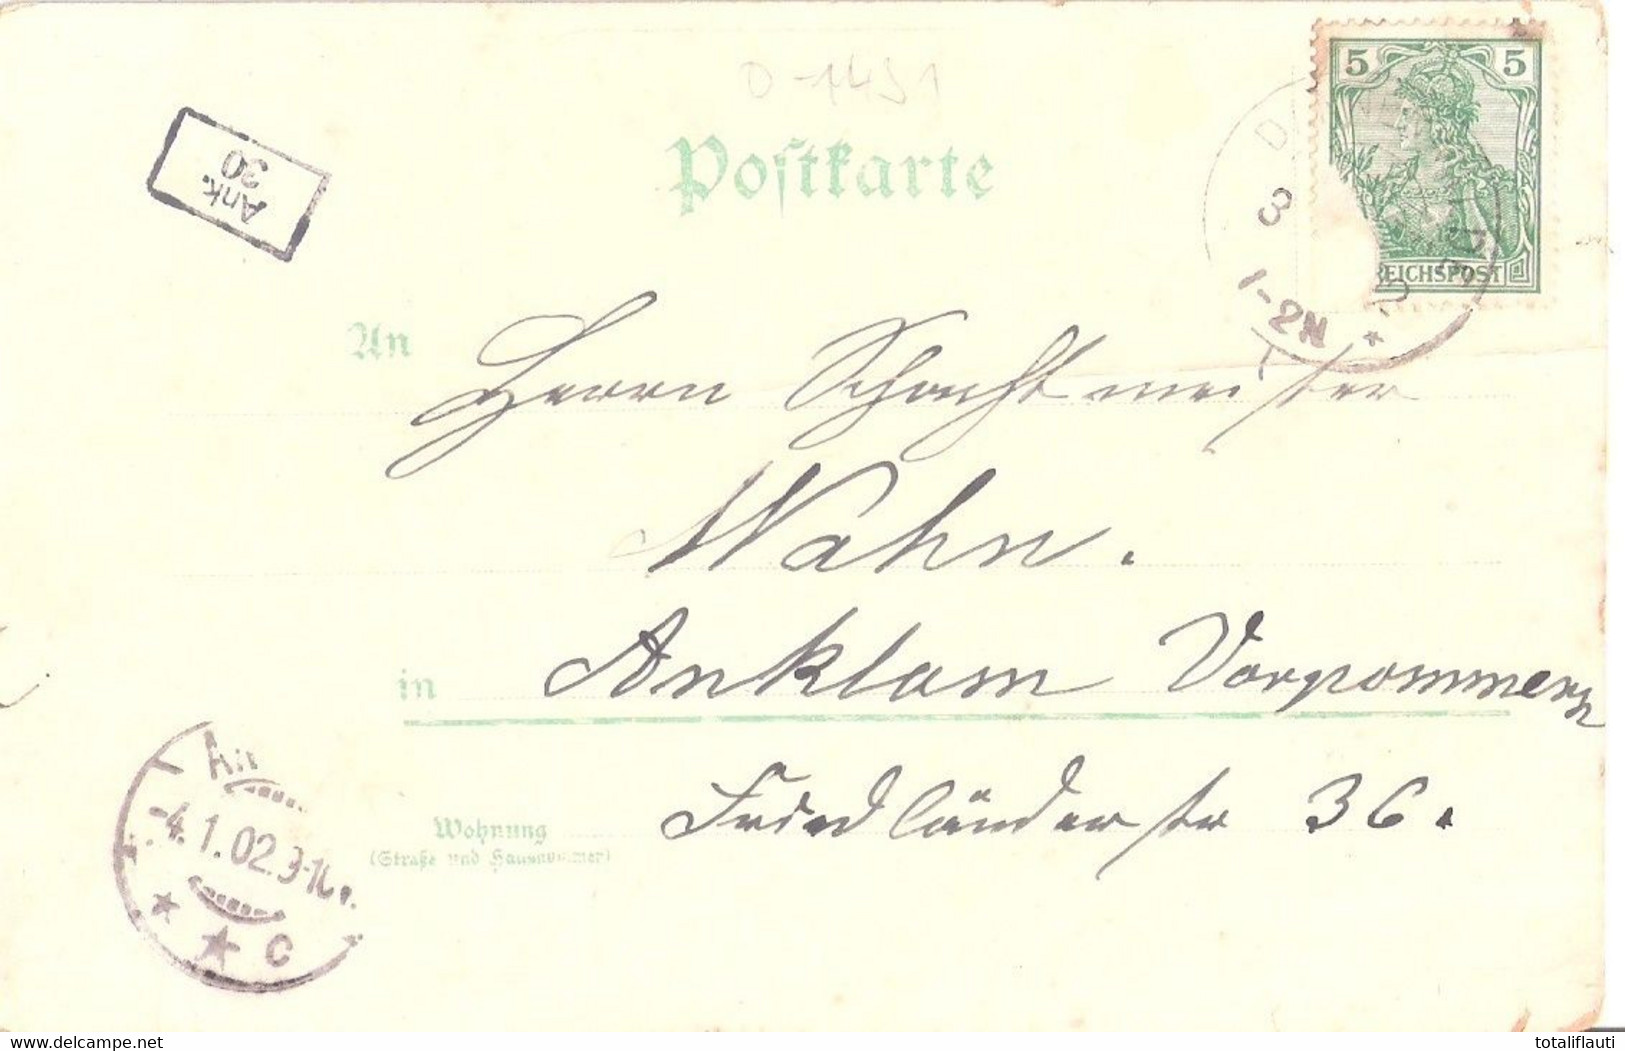 D-1491
5 5
REICHSPOST
Postkarte
Ank.
30
3
1-2N *
An Herrn Schachtmeister
Wahn.
in Anklam Vorpommern
Friedländerstr 36.
Wohnung
(Straße und Hausnummer)
-4.1.02.9-10
* * C
delcampe.net
totaliflauti